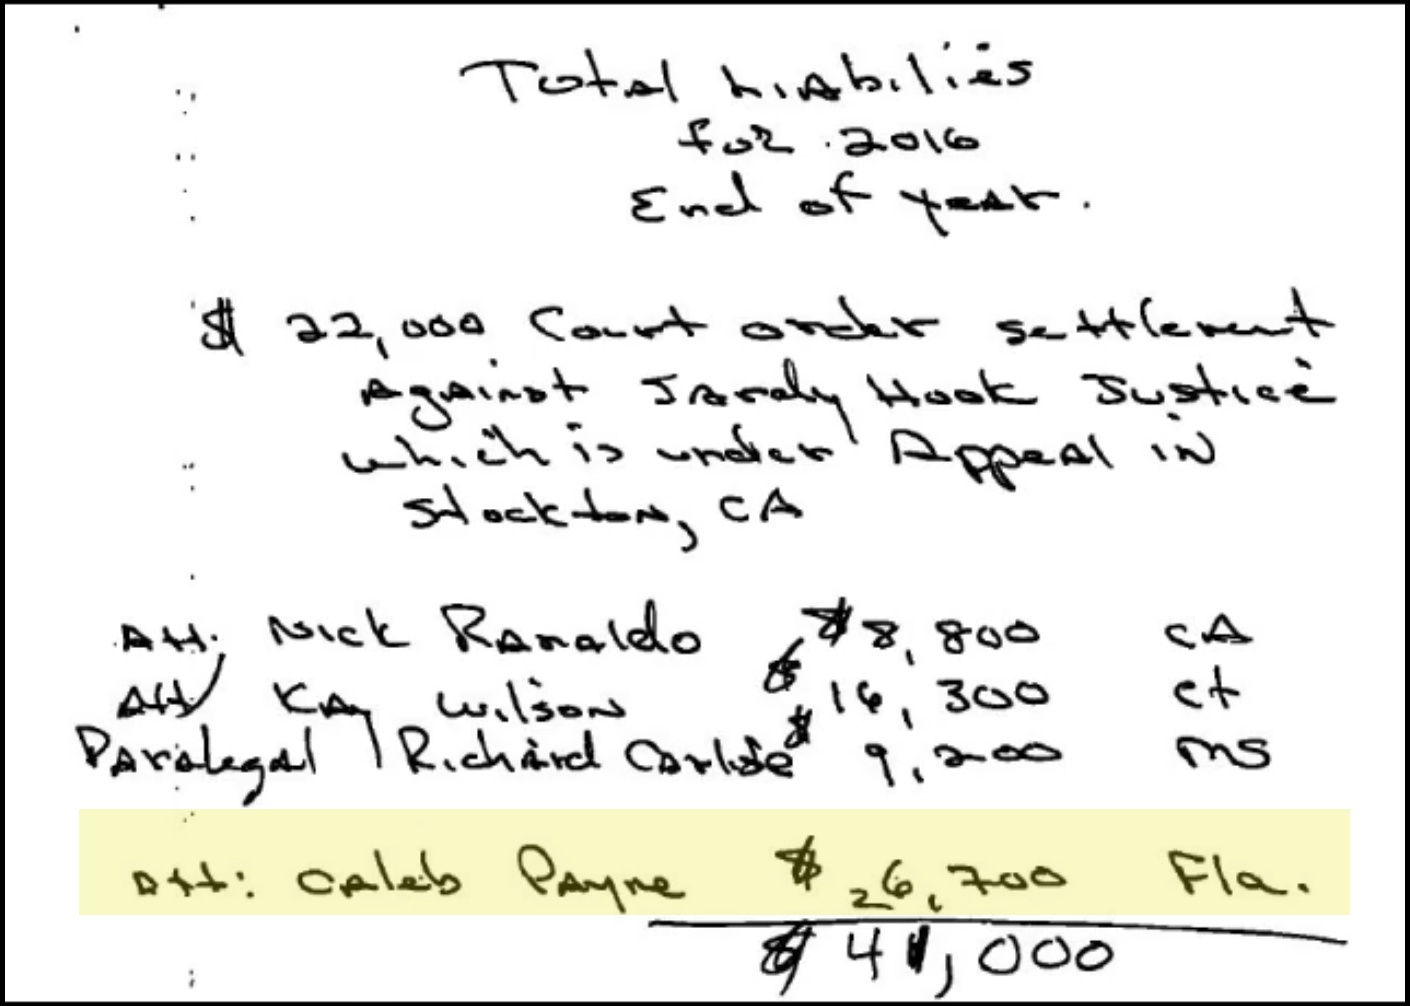 Total Liabilies
for 2016
End of year.
$ 22,000 Court order settlement
against Sandy Hook Justice
which is under Appeal in
Stockton, CA
Att: Nick Ranaldo $8,800 CA
Att Kay Wilson $16,300 Ct
Paralegal Richard $9,200 MS
Att: Caleb Payne $26,700 Fla.
$41,000